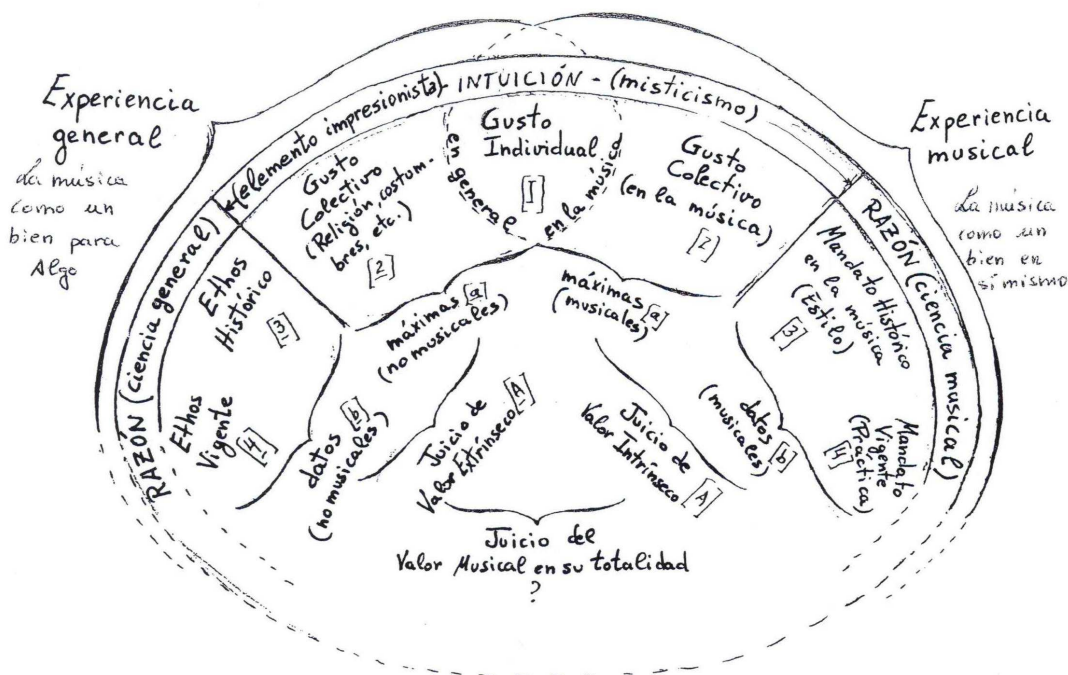 Experiencia
general
La música
como un
bien para
Algo
Experiencia
musical
La música
como un
bien en
sí mismo
(elemento impresionista)- INTUICIÓN - (misticismo)
RAZÓN (ciencia general)
RAZÓN (ciencia musical)
Gusto
Individual
[1]
en general
en la música
Gusto
Colectivo
(Religión, costum-
bres, etc.)
[2]
Gusto
Colectivo
(en la música)
[2]
Ethos
Histórico
[3]
Mandato Histórico
en la música
(Estilo)
[3]
Ethos
Vigente
[4]
Mandato
Vigente
(Práctica)
[4]
máximas [a]
(no musicales)
máximas [a]
(musicales)
datos [b]
(no musicales)
datos [b]
(musicales)
Juicio de
Valor Extrínseco [A]
Juicio de
Valor Intrínseco [A]
Juicio del
Valor Musical en su totalidad
?